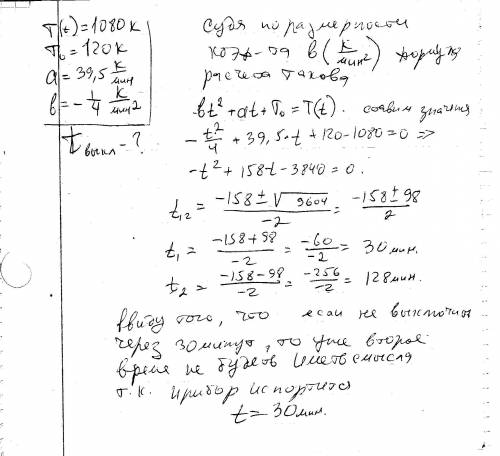 T(t)=1080 К
T₀=120 К
a=39,5 К/мин
b=-1/4 К/мин²
t выкл - ?
Судя по размерности
коэф-та b (К/мин²) формула
расчета такова
bt²+at+T₀=T(t).
значения
-t²/4+39,5·t+120-1080=0 ⇒
-t²+158t-3840=0.
t₁₂=(-158±√9604)/-2=(-158±98)/2
t₁=(-158+98)/-2=-60/-2=30 мин.
t₂=(-158-98)/-2=-256/-2=128 мин.
Ввиду того, что если не выключить
через 30 минут, то уже второе
время не будет иметь смысла
т.к. прибор испортится
t=30 мин.